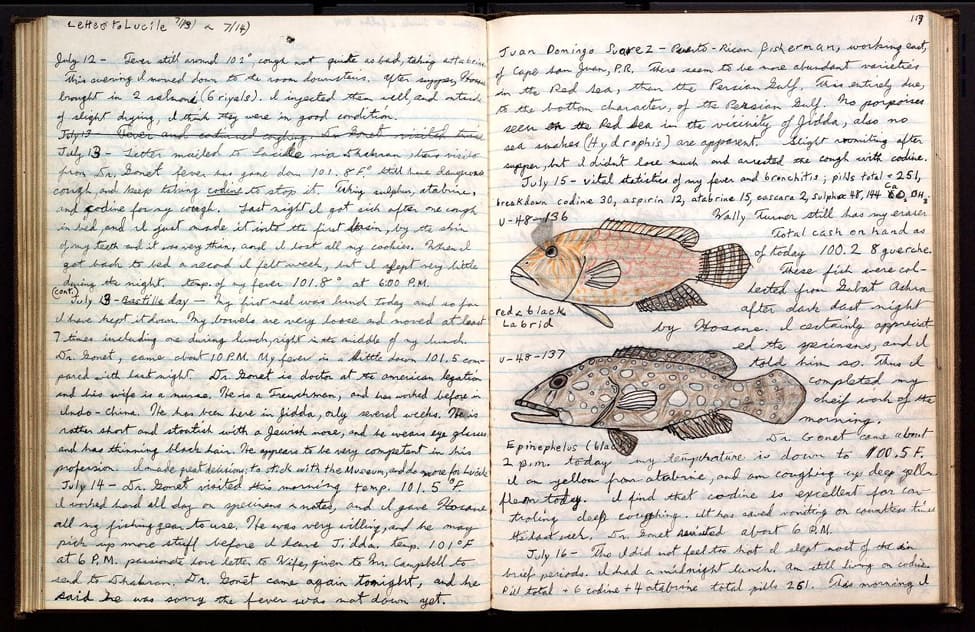 Letter to Lucile 7/13 a 7/14)
July 12 – Fever still around 102°, cough not quite as bad, taking atabrine
This evening I moved down to the room downstairs. After supper, Hosane
brought in 2 salmond (6 riyals). I injected them well, and instead
of slight drying, I think they were in good condition.
July 13 – Fever and continued coughing. Dr. Gonet visited
July 13 – Letter mailed to Lucile via Dhahran, then visits
from Dr. Gonet fever has gone down 101.8°F still have dangerous
cough, and keep taking codine to stop it. Taking sulpher, atabrine,
and codine for my cough. Last night I got sick after one cough
in bed, and I just made it into the first basin, by the skin
of my teeth and it was very thin, and I lost all my cookies. When I
got back to bed a second I felt weak, but I slept very little
during the night. temp. of my fever 101.8° at 6:00 P.M.
(cont.)
July 13 – Bastille day – My first meal was lunch today and so far
I have kept it down. My bowels are very loose and moved at least
7 times including one during lunch, right in the middle of my lunch.
Dr. Gonet, came about 10 P.M. My fever is a little down 101.5 com-
pared with last night. Dr. Gonet is doctor at the american legation
and his wife is a nurse. He is a Frenchman, and has worked before in
Indo-china. He has been here in Jidda, only several weeks. He is
rather short and stoutish with a Jewish nose, and he wears eye glasses
and has thinning black hair. He appears to be very competent in his
profession. I made great decision; to stick with the Museum, and do more for Lucile
July 14 – Dr. Gonet visited this morning temp. 101.5°F
I worked hard all day on specimens & notes, and I gave Hosane
all my fishing gear to use. He was very willing, and he may
pick up more stuff before I leave Jidda. temp. 101°F
at 6 P.M. passionate love letter to Wife, given to Mr. Campbell to
send to Dhahran. Dr. Gonet came again tonight, and he
said he was sorry the fever was not down yet.
113
Juan Domingo Suarez – Puerto-Rican fisherman, working east
of Cape San Juan, P.R. There seem to be more abundant varieties
in the Red Sea, then the Persian Gulf. This entirely due,
to the bottom character, of the Persian Gulf. No porpoises
seen on the Red Sea in the vicinity of Jidda, also no
sea snakes (Hydrophis) are apparent. Slight vomiting after
supper, but I didn't lose much and arrested the cough with codine.
July 15 – vital statistics of my fever and bronchitis; pills total = 251,
breakdown codine 30, aspirin 12, atabrine 15, cascara 2, sulpha 48, 144
U-48-136
Wally Turner still has my eraser
Total cash on hand as
of today 100.28 guerche.
These fish were col-
lected from Gubat Ashra
after dark last night
red & black
Labrid
by Hosane. I certainly appreciat-
ed the specimens, and I
U-48-137
told him so. Thus I
completed my
cheif work of the
morning.
Epinephelus (black
Dr. Gonet came about
2 p.m. today my temperature is down to 100.5 F.
I am yellow from atabrine, and am coughing up deep yellow
flem today. I find that codine is excellent for con-
troling deep coughing. It has saved vomiting on countless times
the last week. Dr. Gonet revisited about 6 P.M.
July 16 – Tho I did not feel too hot I slept most of the
brief periods. I had a midnight lunch. Am still living on codine.
Pill total + 6 codine + 4 atabrine total pills 261. This morning I